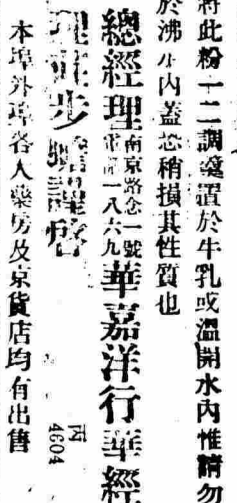 將此粉一二調羹置於牛乳或溫開水內惟請勿
於沸水內蓋恐稍損其性質也
總經理南京路念一號
電話一八六九
華嘉洋行華經
理 步瞻謹啓
本埠外埠各大藥房及京貨店均有出售
4604